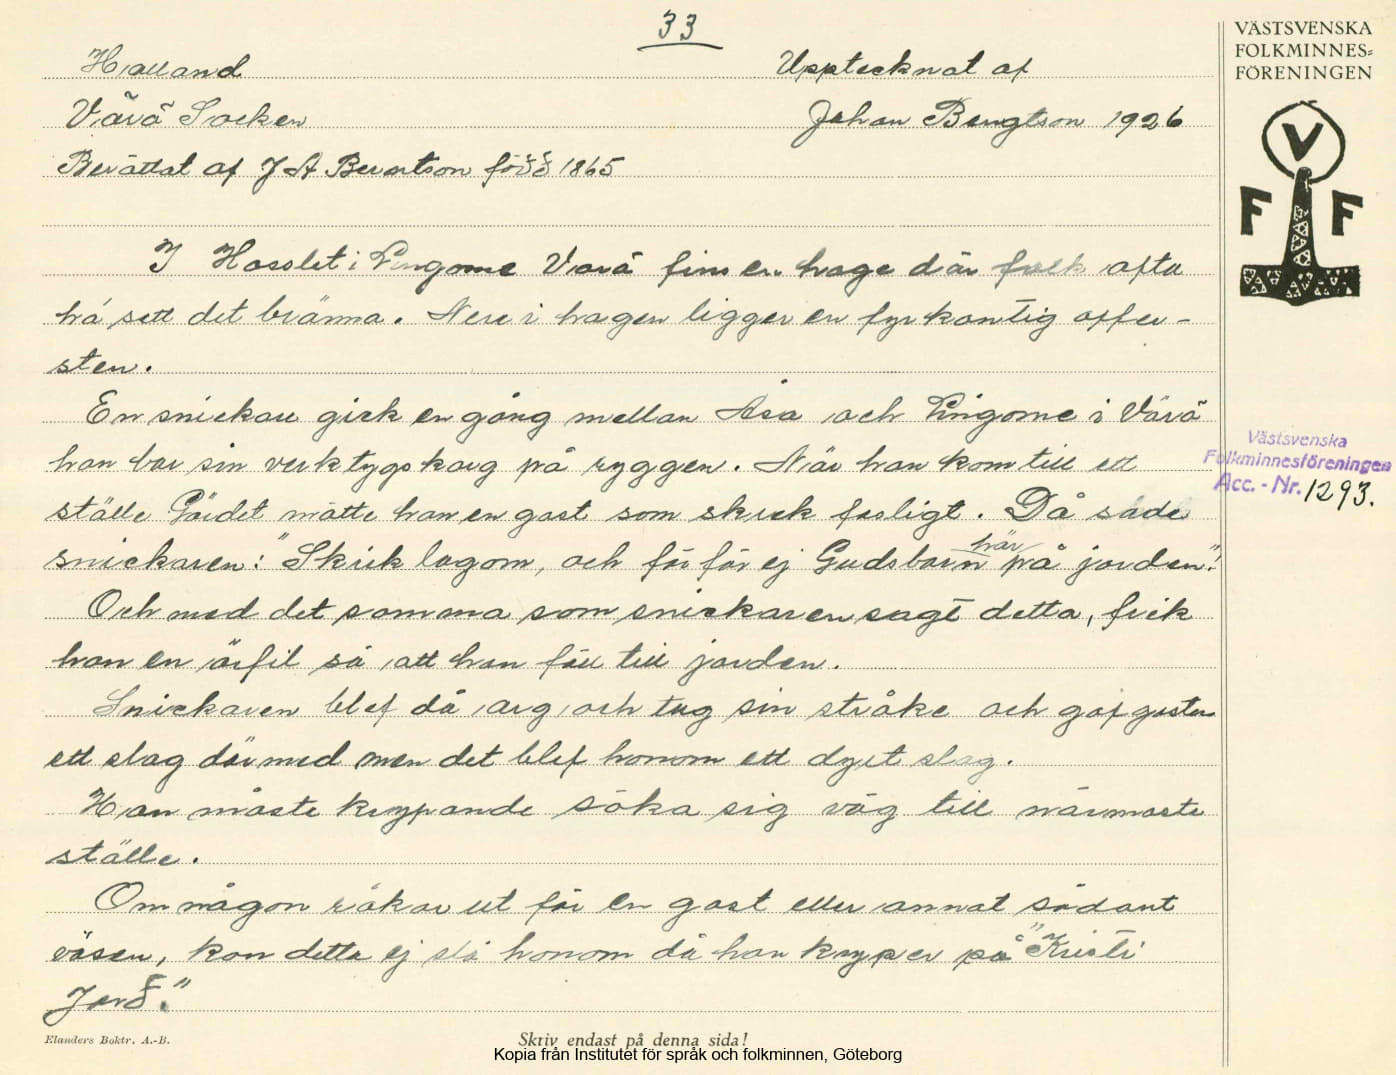 33
Halland
Upptecknat af
VÄSTSVENSKA
FOLKMINNES=
FÖRENINGEN
Värö Socken
Johan Bengtson 1926
Berättat af J A Berntson född 1865
V
F F
I Hasslet i Lingome Värö fins en hage där folk ofta
há sett det bränna. Nere i hagen ligger en fyrkantig offer-
sten.
En snickare gick en gång mellan Åsa och Lingome i Värö
han bar sin verktygskorg på ryggen. När han kom till ett
ställe Gärdet mötte han en gast som skrek fasligt. Då sade
snickaren: "Skrik lagom, och för för ej Gudsbarn här på jorden"!
Och med det samma som snickaren sagt detta, fick
han en örfil så att han föll till jorden.
Snickaren blef då arg och tog sin stråke och gaf gasten
ett slag därmed men det blef honom ett dyrt slag.
Han måste krypande söka sig väg till närmaste
ställe.
Om någon råkar ut för en gast eller annat sådant
väsen, kan detta ej slå honom då han kryper på "Kristi
Jord."
Västsvenska
Folkminnesföreningen
Acc. - Nr. 1293.
Elanders Boktr. A.-B.
Skriv endast på denna sida!
Kopia från Institutet för språk och folkminnen, Göteborg